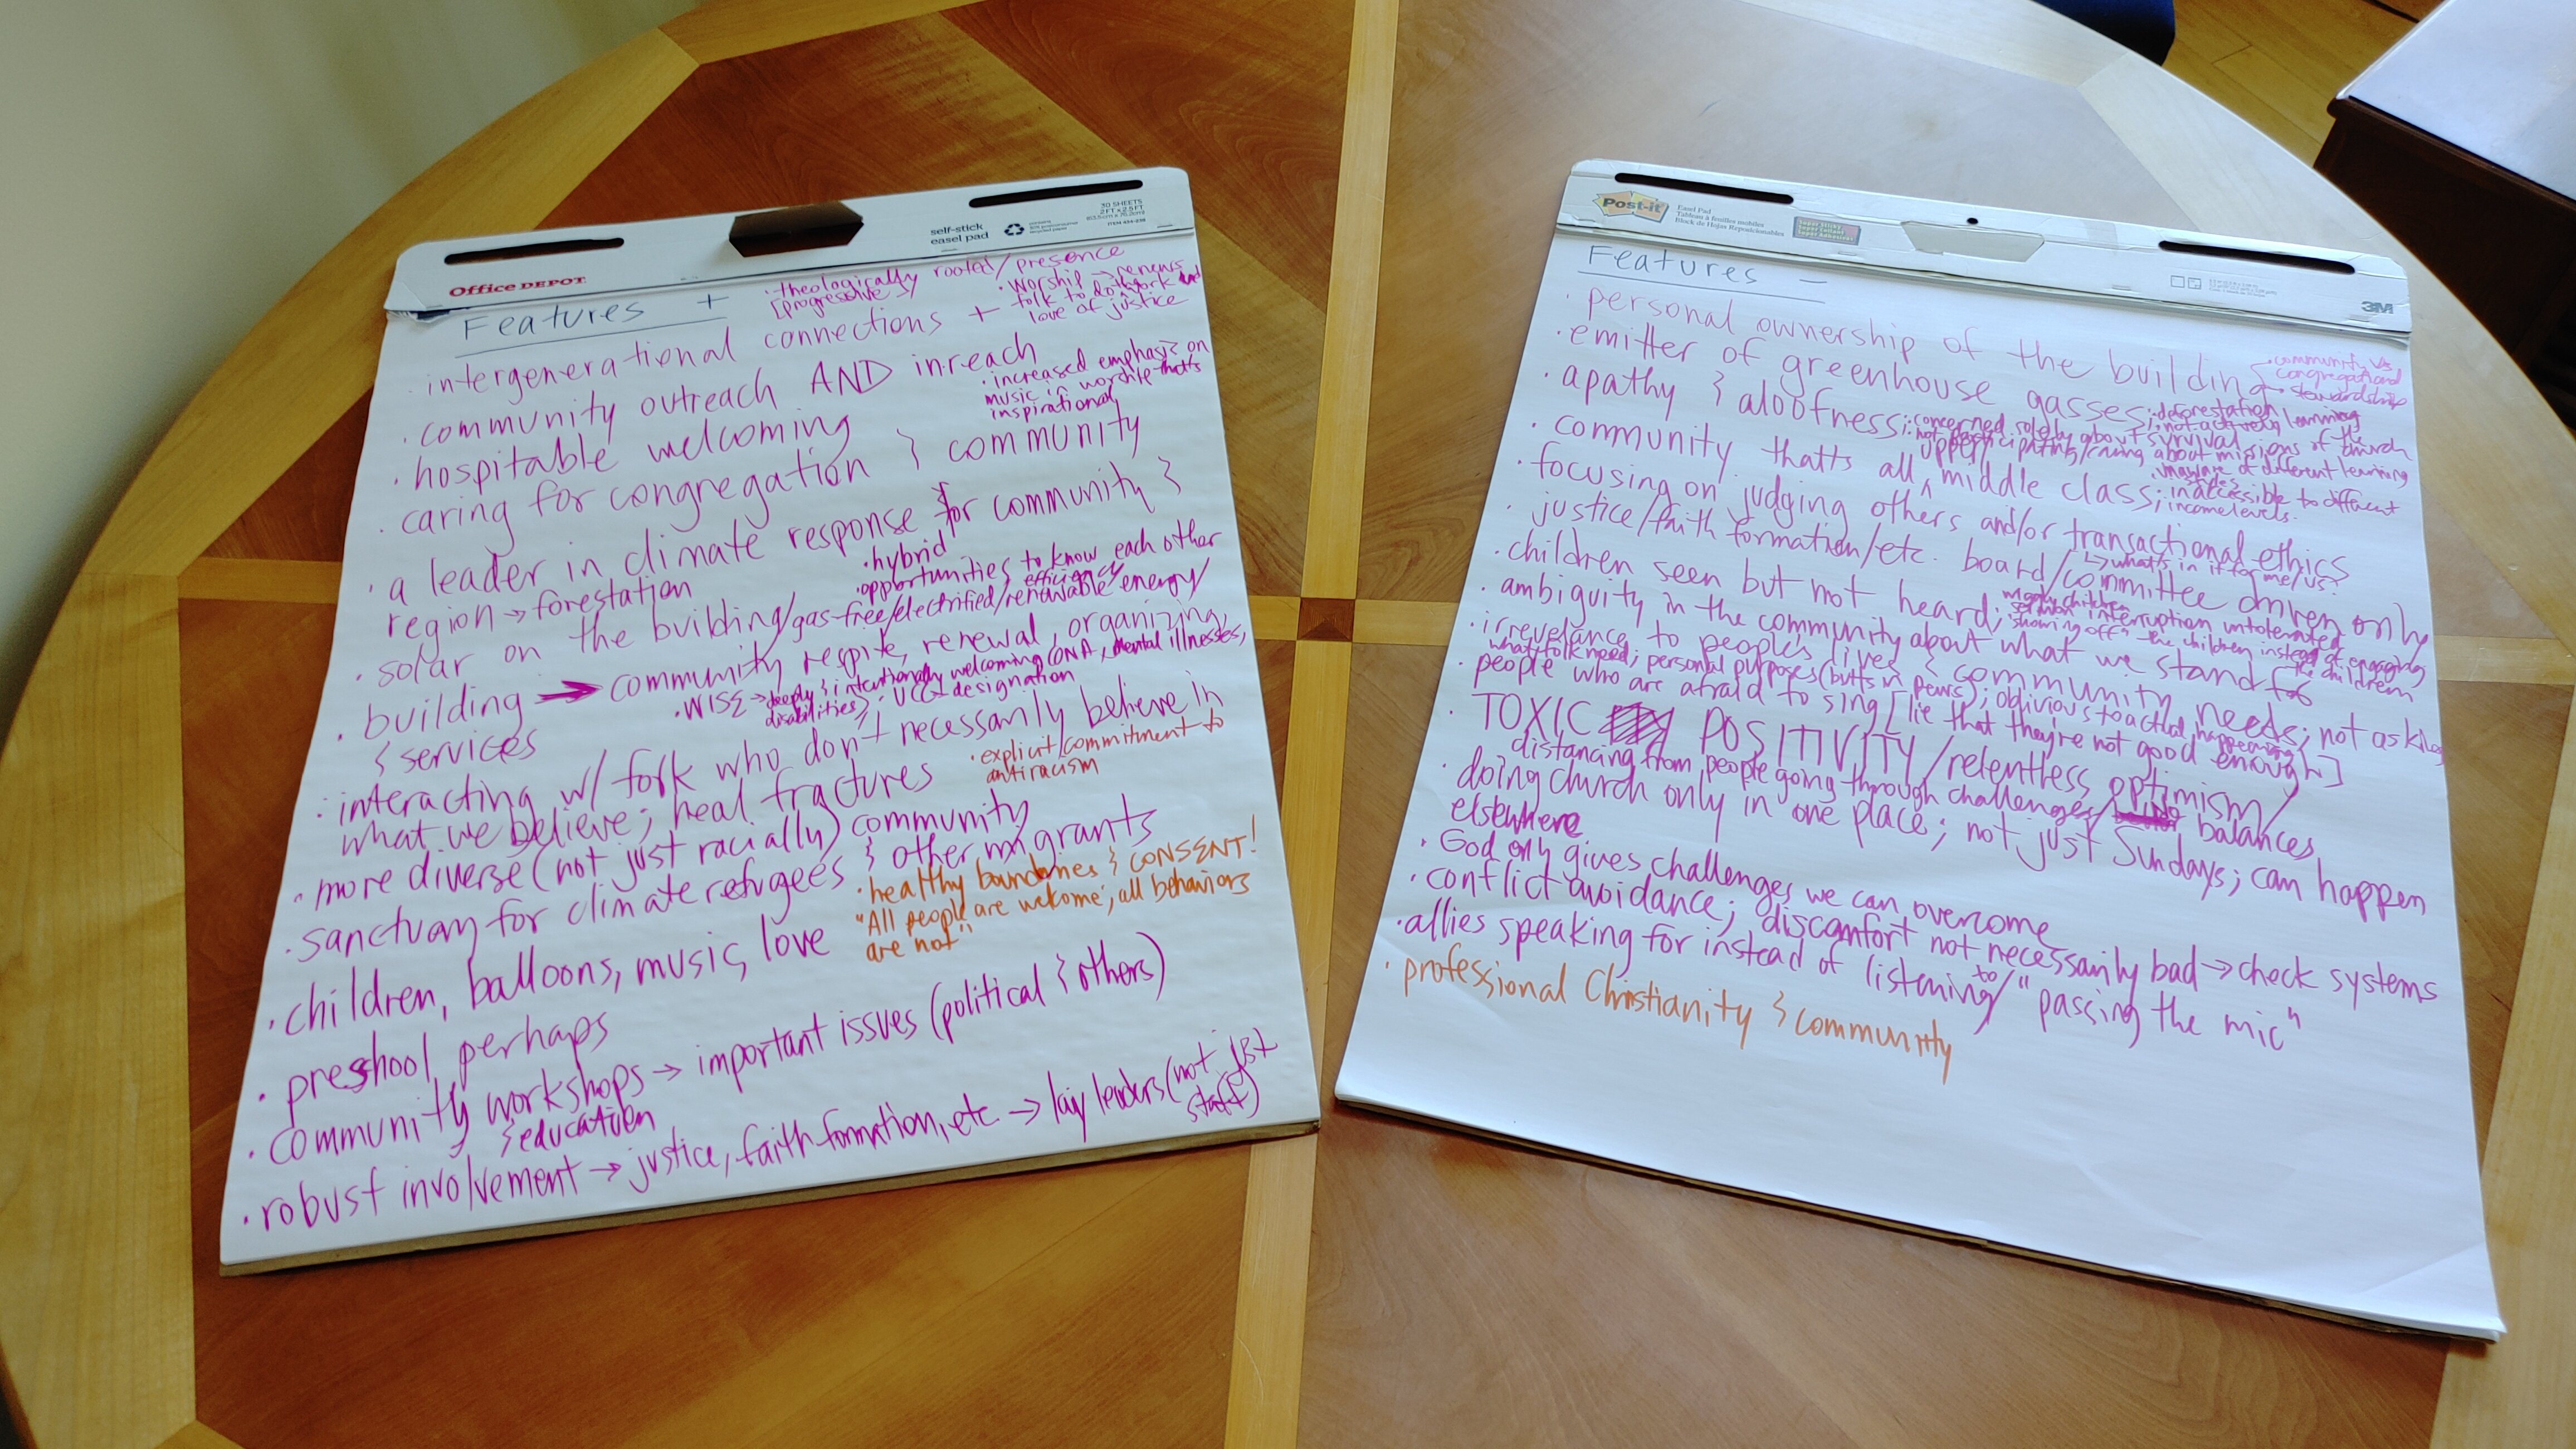 Office DEPOT
self-stick
easel pad
30 SHEETS
2 FT x 2.5 FT
Features +
· theologically rooted/presence
[progressive]
· Worship → renews
folk to do the work and
love of justice
· intergenerational connections +
· community outreach AND inreach
· increased emphasis on
music in worship thatts
inspirational
· hospitable welcoming
· caring for congregation & community
· a leader in climate response for community &
region → forestation
· hybrid
· opportunities to know each other
· solar on the building/gas-free/electrified/renewable energy/
efficiency
· building → community respite, renewal, organizing,
& services
· WISE → deeply & intentionally welcoming (ONA, mental illnesses,
disabilities); UCC designation
· interacting w/ folk who don't necessarily believe in
what we believe; heal fractures
· explicit commitment to
antiracism
· more diverse (not just racially) community
· sanctuary for climate refugees & other migrants
· healthy boundaries & CONSENT!
"All people are welcome; all behaviors
are not"
· children, balloons, music, love
· preshool, perhaps
· community workshops → important issues (political & others)
& education
· robust involvement → justice, faith formation, etc → lay leaders (not just
staff)
Post-it
Easel Pad
Tableau à feuilles mobiles
Block de Hojas Reposicionables
3M
Features -
· personal ownership of the building
· community vs
congregational
stewardship
· emitter of greenhouse gasses; deforestation
· apathy & aloofness; concerned solely about survival; not actively learning
not participating/caring about missions of the church
· community thatts all upper middle class; inaccessible to different
income levels.
· unaware of different learning
styles
· focusing on judging others and/or transactional ethics
↳ what's in it for me/us?
· justice/faith formation/etc. board/committee driven only
· children seen but not heard; wiggly children
sermon interruption untolerated
"showing off" the children instead of engaging
the children
· ambiguity in the community about what we stand for
· irrevelance to people's lives & community needs; not asking
what folk need; personal purposes (butts in pews); oblivious to actual happenings
· people who are afraid to sing [lie that they're not good enough]
· TOXIC POSITIVITY/relentless optimism/
distancing from people going through challenges/ no balances
· doing church only in one place; not just Sundays; can happen
elsewhere
· God only gives challenges we can overcome
· conflict avoidance; discomfort not necessarily bad → check systems
· allies speaking for instead of listening to/"passing the mic"
· professional Christianity & community